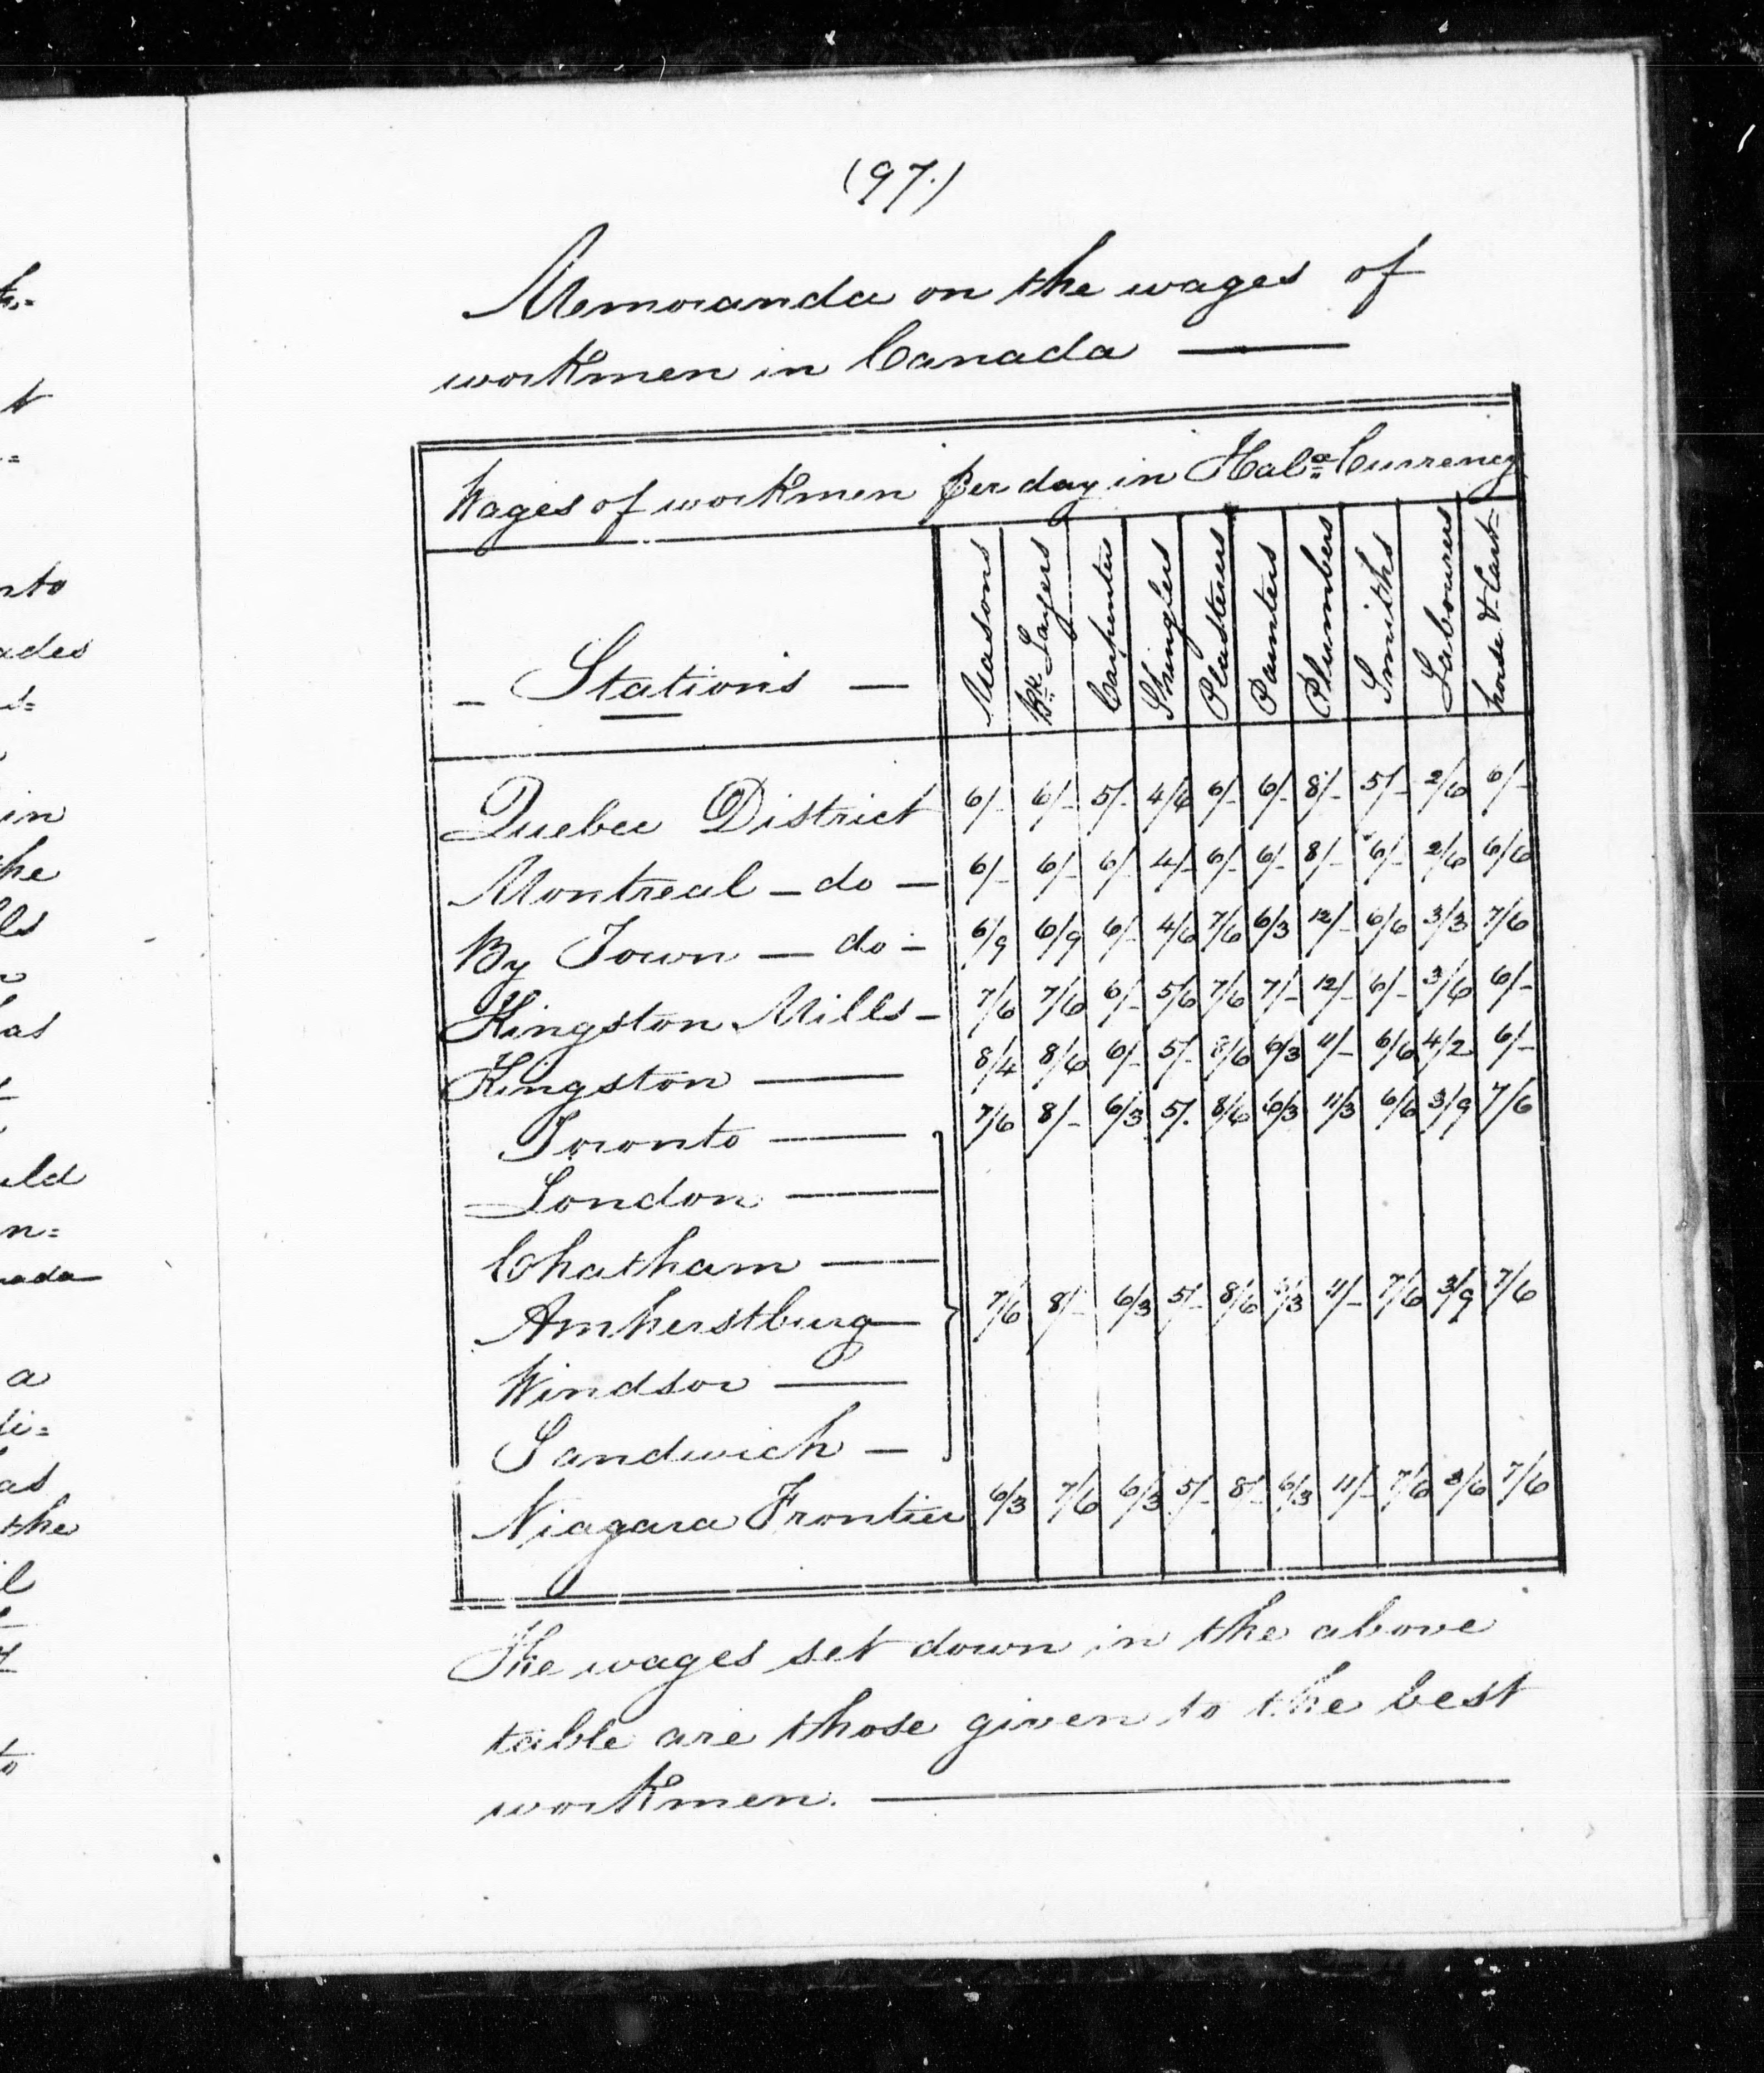 (97.)
Memoranda on the wages of
workmen in Canada —
Wages of workmen per day in Hal.ª Currency
— Stations — Masons Br. Layers Carpenters Shinglers Plasterers Painters Plumbers Smiths Labourers horse & Cart
Quebec District 6/- 6/- 5/- 4/6 6/- 6/- 8/- 5/- 2/6 6/-
Montreal — do — 6/- 6/- 6/- 4/- 6/- 6/- 8/- 6/- 2/6 6/6
By Town — do — 6/9 6/9 6/- 4/6 7/6 6/3 12/- 6/6 3/3 7/6
Kingston Mills — 7/6 7/6 6/- 5/6 7/6 7/- 12/- 6/- 3/6 6/-
Kingston — 8/4 8/6 6/- 5/- 8/6 6/3 11/- 6/6 4/2 6/-
Toronto — 7/6 8/- 6/3 5/- 8/6 6/3 11/3 6/6 3/9 7/6
London —
Chatham —
Amherstburg — 7/6 8/- 6/3 5/- 8/6 6/3 11/- 7/6 3/9 7/6
Windsor —
Sandwich —
Niagara Frontier 6/3 7/6 6/3 5/- 8/- 6/3 11/- 7/6 3/6 7/6
The wages set down in the above
table are those given to the best
workmen. —